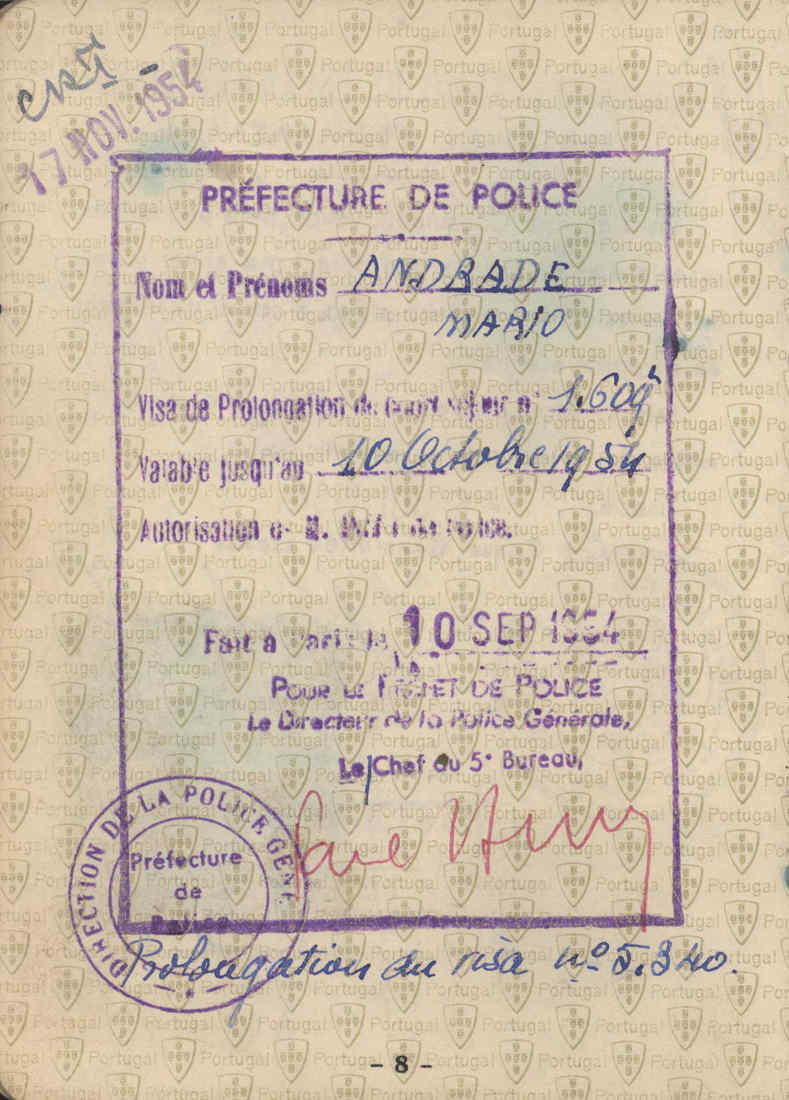 17 NOV. 1954
PRÉFECTURE DE POLICE
Nom et Prénoms ANDRADE
MARIO
Visa de Prolongation de court séjour n° 1.609
Valable jusqu'au 10 Octobre 1954
Autorisation
Fait à Paris le 10 SEP 1954
POUR LE PRÉFET DE POLICE
Le Directeur de la Police Générale,
Le Chef du 5e Bureau,
DIRECTION DE LA POLICE GÉNÉ
Préfecture
de
Police
Prolongation du visa n° 5.340.
- 8 -
Portugal